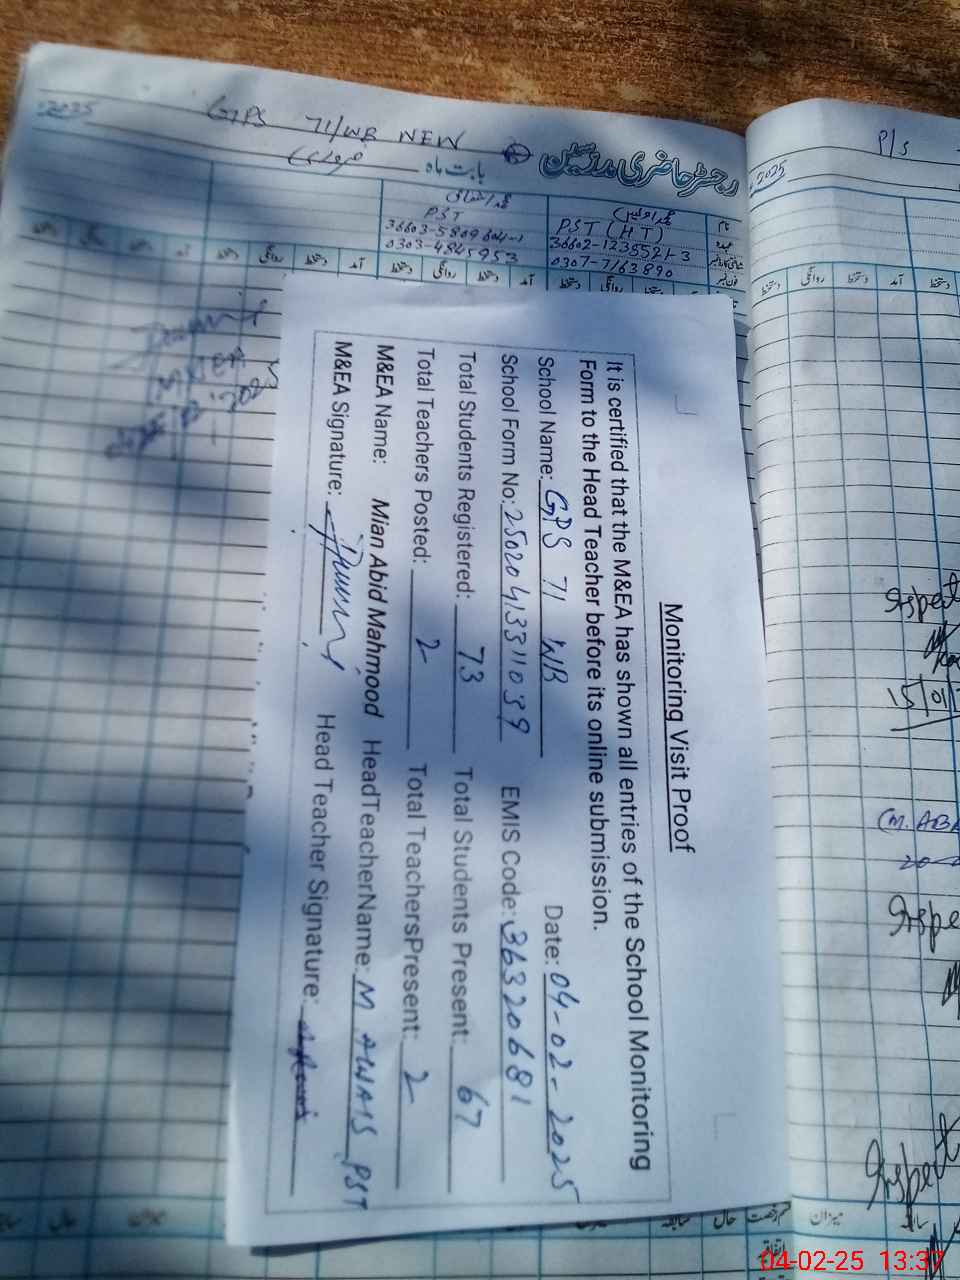 GPS 71/WB NEW
رجسٹر حاضری مدرسین
بابت ماہ فروری
2025
P/S
2025
محمد اویس
محمد اشفاق
PST (HT)
PST
36602-1235521-3
36603-5809604-1
0307-7163890
0303-4845953
نام
عہدہ
دستخط
روانگی
دستخط
آمد
Monitoring Visit Proof
It is certified that the M&EA has shown all entries of the School Monitoring
Form to the Head Teacher before its online submission.
Date: 04-02-2025
School Name: GPS 71 WB
School Form No: 25020413311039 EMIS Code: 36320681
Total Students Registered: 73 Total Students Present: 67
Total Teachers Posted: 2 Total TeachersPresent: 2
M&EA Name: Mian Abid Mahmood HeadTeacherName: M AWAIS PST
M&EA Signature: Head Teacher Signature:
(M. ABA
میزان
حال
سابقہ
قسم رخصت
اتفاقیہ
میزان
04-02-25 13:37